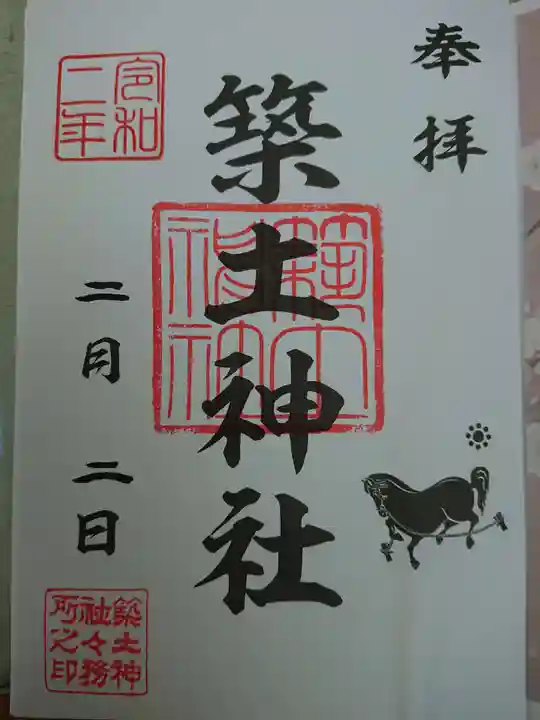 奉拝
築土神社
築土神社
令和二年
二月二日
築土神
社々務
所之印